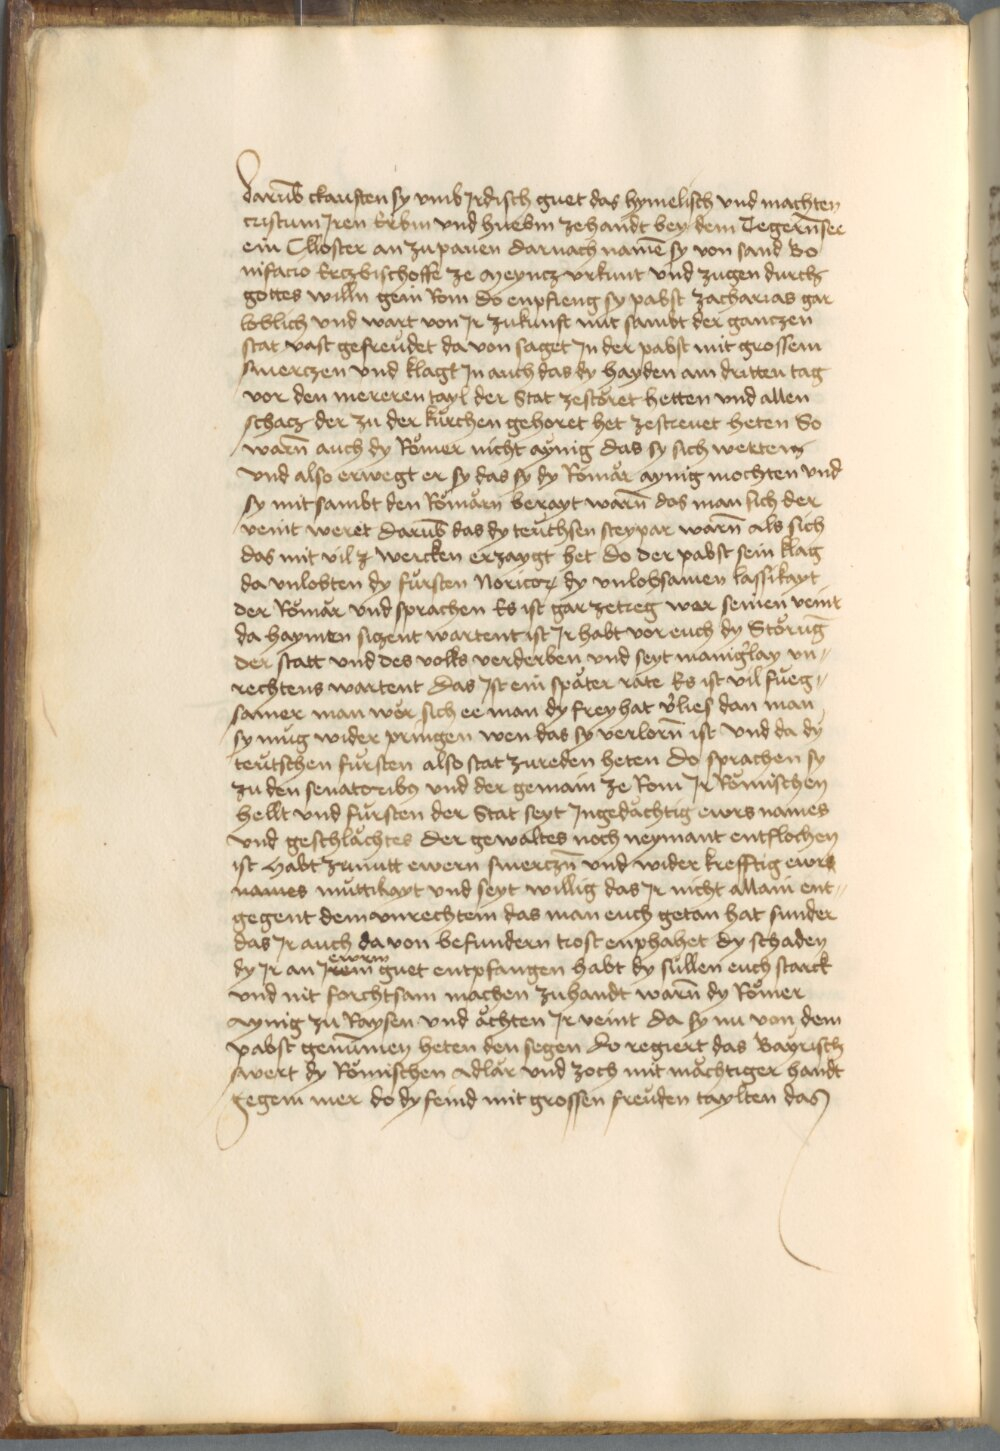 darūb ckauften sy vmb Irdisch guet das hymelisch vnd machten
cristum Iren Erbm vnd huebm zehandt bey dem Tegerñsee
ein Closter an zupauen darnach namē sy von sand Bo
nifacio Erczbischoffe ze Meyncz vrkunt vnd zugen durch
gottes willn gein Rom do enpfieng sy pabst zacharias gar
loblich vnd wart von Ir zukunft mit sambt der ganczen
stat vast gefreudet da von saget In der pabst mit grossem
smerczen vnd klagt In auch das dy hayden am dritten tag
vor den mereren tayl der Stat zestöret hetten vnd allen
schacz der zu der kürchen gehoret het zestreuet heten So
warñ auch dy Römer nicht aynig das sy sich werten
vnd also erwegt er sy das sy dy Romår aynig mochten vnd
sy mit sambt den Römårn berayt warñ das man sich der
veint weret darūb das dy teutschen steypar warñ als sich
das mit vil wercken erzaygt het do der pabst sein klag
da vnlobten dy fürsten Noricoꝝ dy vnlobsamen lassikayt
der Römår vnd sprachen Es ist gar zetreg wer seinen veint
da haymen siczent wartent ist Ir habt vor euch dy Störūg
der statt vnd des volks verderben vnd seyt maniglay vn⸗
rechtens wartent das Ist ein spåter rate Es ist vil fueg⸗
samer man wer sich ee man dy freyhat v̓lies dan man
sy mug wider pringen wen das sy verlorñ ist vnd da dy
teutschen fürsten also stat zureden heten do sprachen sy
zu den senatoribꝰ vnd der gemain ze Rom Ir Römischen
hellt vnd fürsten der Stat seyt Ingedåchtig ewrs names
vnd geschlåchtes der gewaltes noch neymant entflochen
ist habt zemutt ewern smerczñ vnd wider krefftig ewrs
names muttikayt vnd seyt willig das Ir nicht allain ent⸗
gegent dem vnrechtem das man euch getan hat sunder
das Ir auch da von besundern trost enphahet dy schaden
ewrm
dy Ir an Irem guet entpfangen habt dy süllen euch starck
vnd nit forchtsam machen zuhandt warñ dy Römer
aynig zu Raysen vnd åchten Ir veint da sy nu von dem
pabst genūmen heten den segen do regiert das Bayrisch
swert dy Römischen Adlår vnd zoch mit måchtiger handt
gegem mer do dy feind mit grossen freuden taylten das